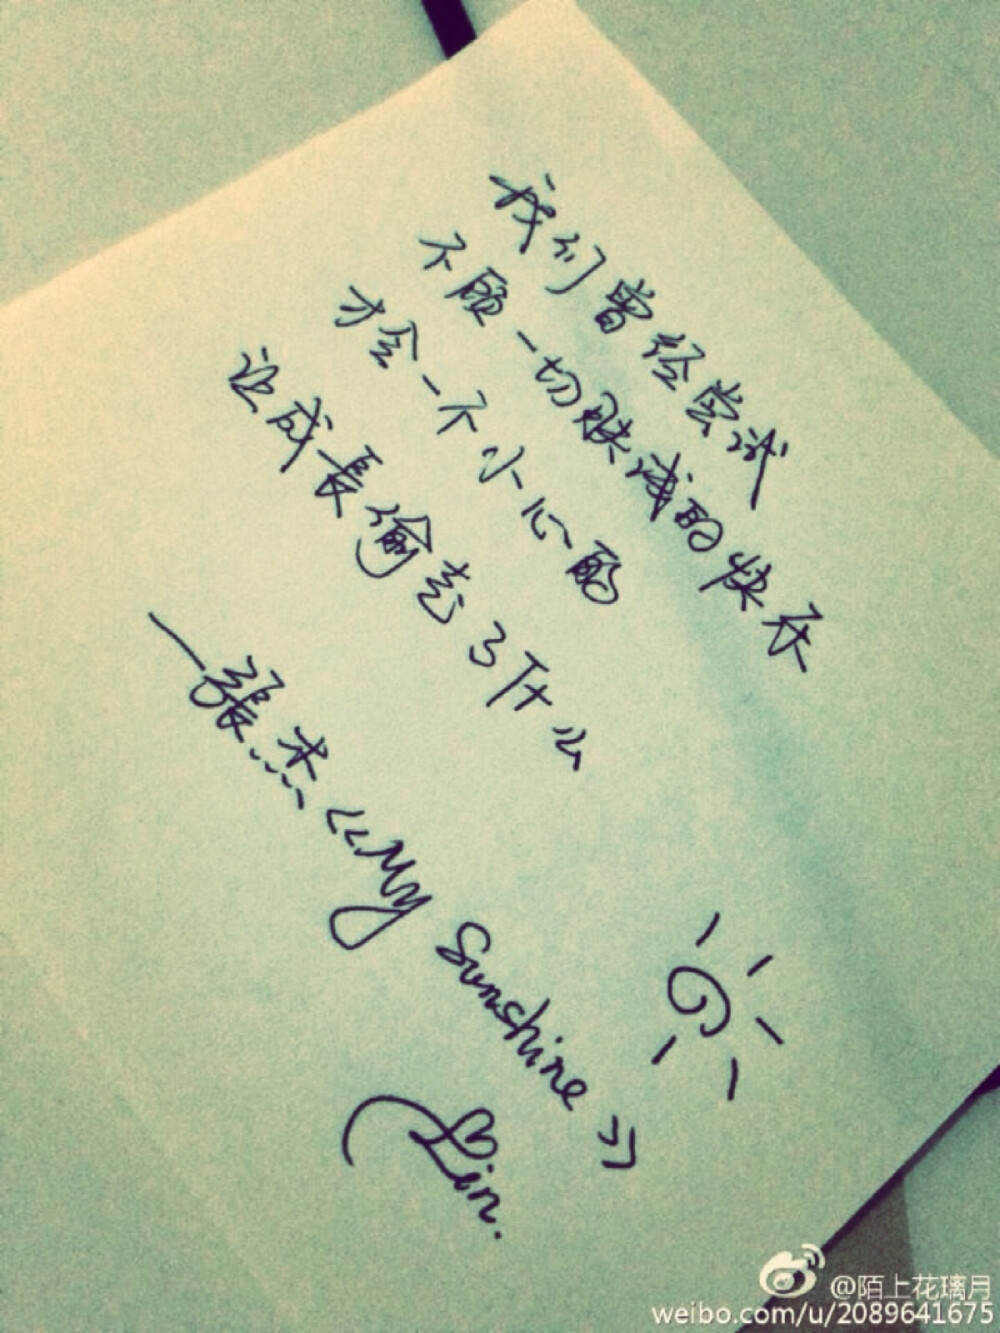 我们曾经尝试
不顾一切肤浅的快乐
才会一不小心的
让成長偷走了什么
—張杰《My Sunshine》
Lin.
@陌上花璃月
weibo.com/u/2089641675